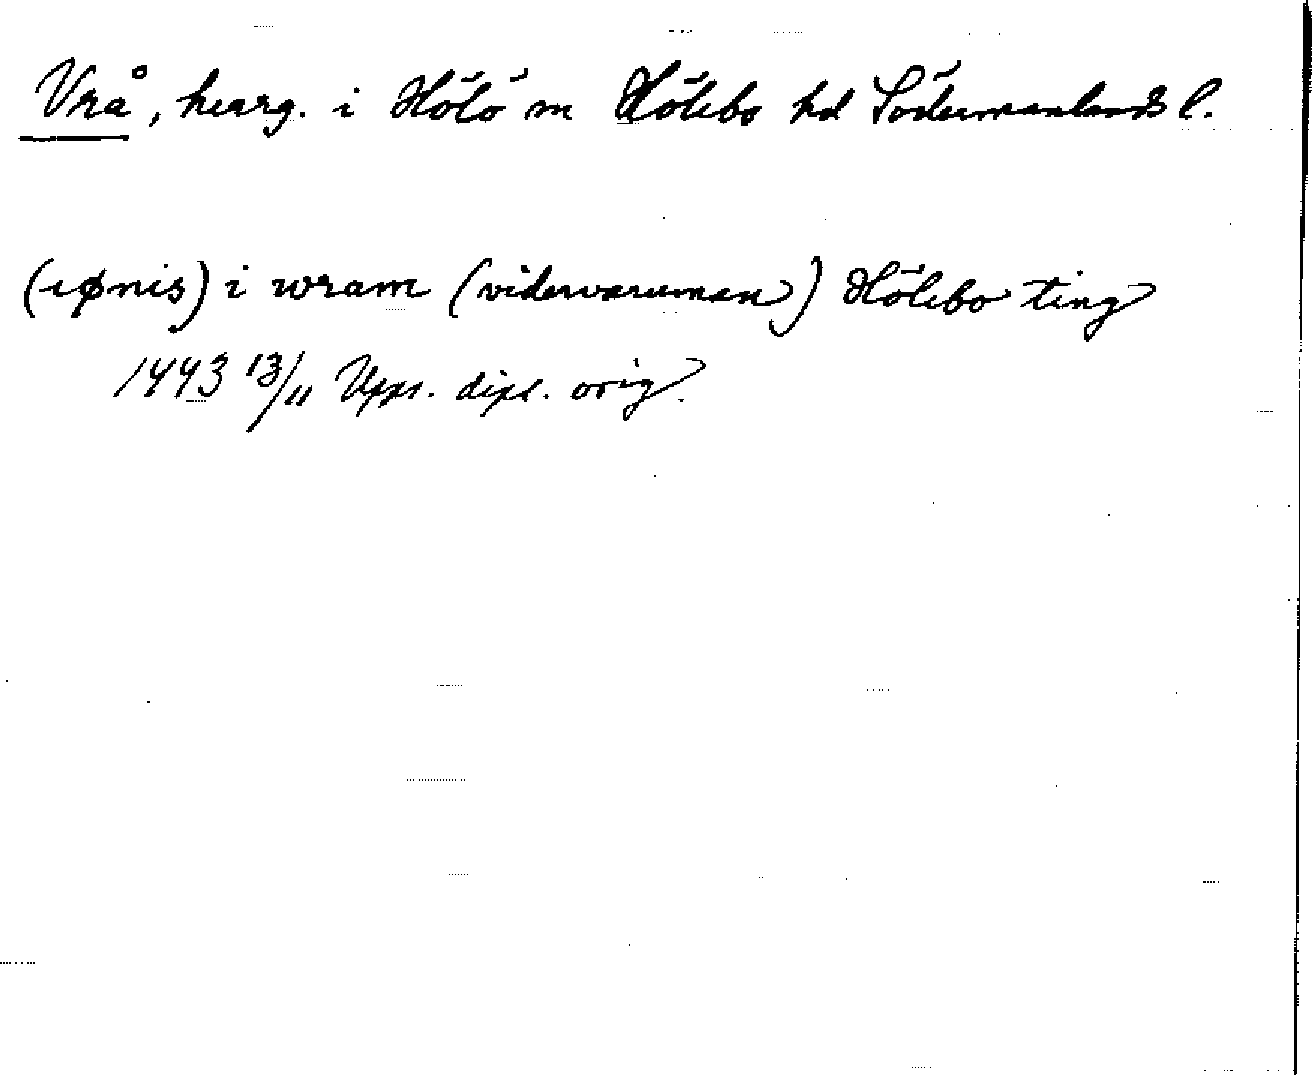 Vrå, herrg. i Hölö sn Hölebo hd Södermanlands l.
(iønis) i wram (viderwaruman) Hölebo ting
1443 13/11 Upps. dipl. orig.